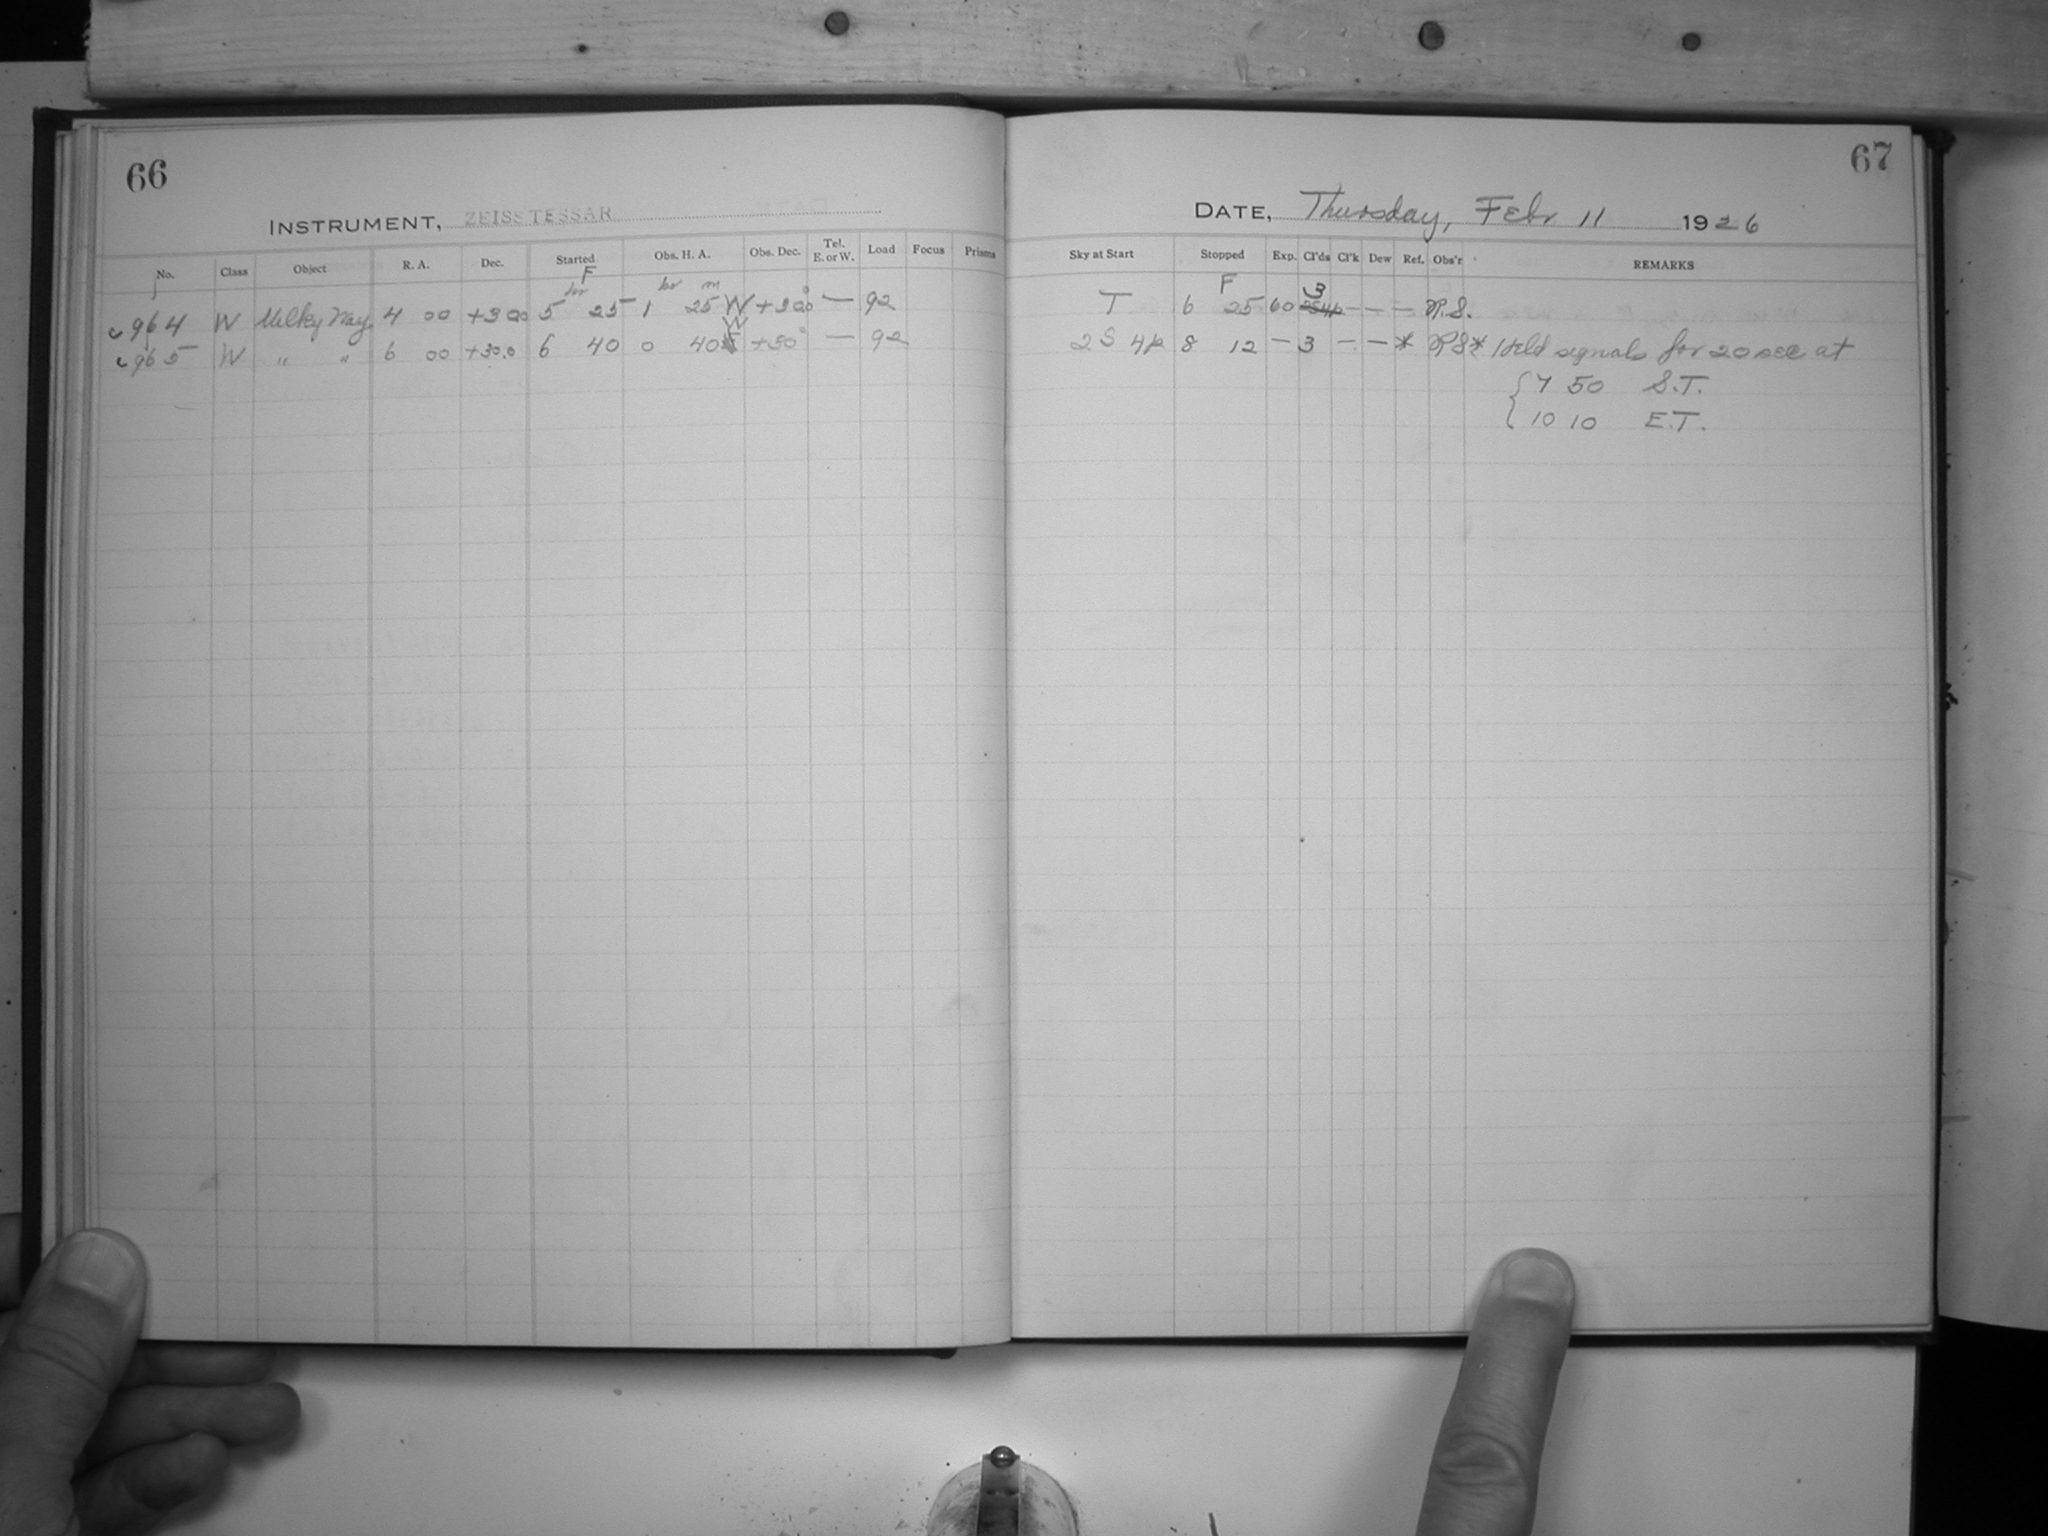 66
INSTRUMENT, ZEISS TESSAR
No. Class Object R. A. Dec. Started Obs. H. A. Obs. Dec. Tel. E. or W. Load Focus Prisms
F hr hr m
964 W Milky Way 4 00 +30.0 5 25 1 25 W +30.0° — 92
965 W " " 6 00 +30.0 6 40 0 40 W +30° — 92
67
DATE, Thursday, Febr 11 1926
Sky at Start Stopped Exp. Cl'ds Cl'k Dew Ref. Obs'r REMARKS
F
T 6 25 60 3 — — — R.S.
2S 4p 8 12 — 3 — — * RS * Held signals for 20 sec at
{7 50 S.T.
{10 10 E.T.